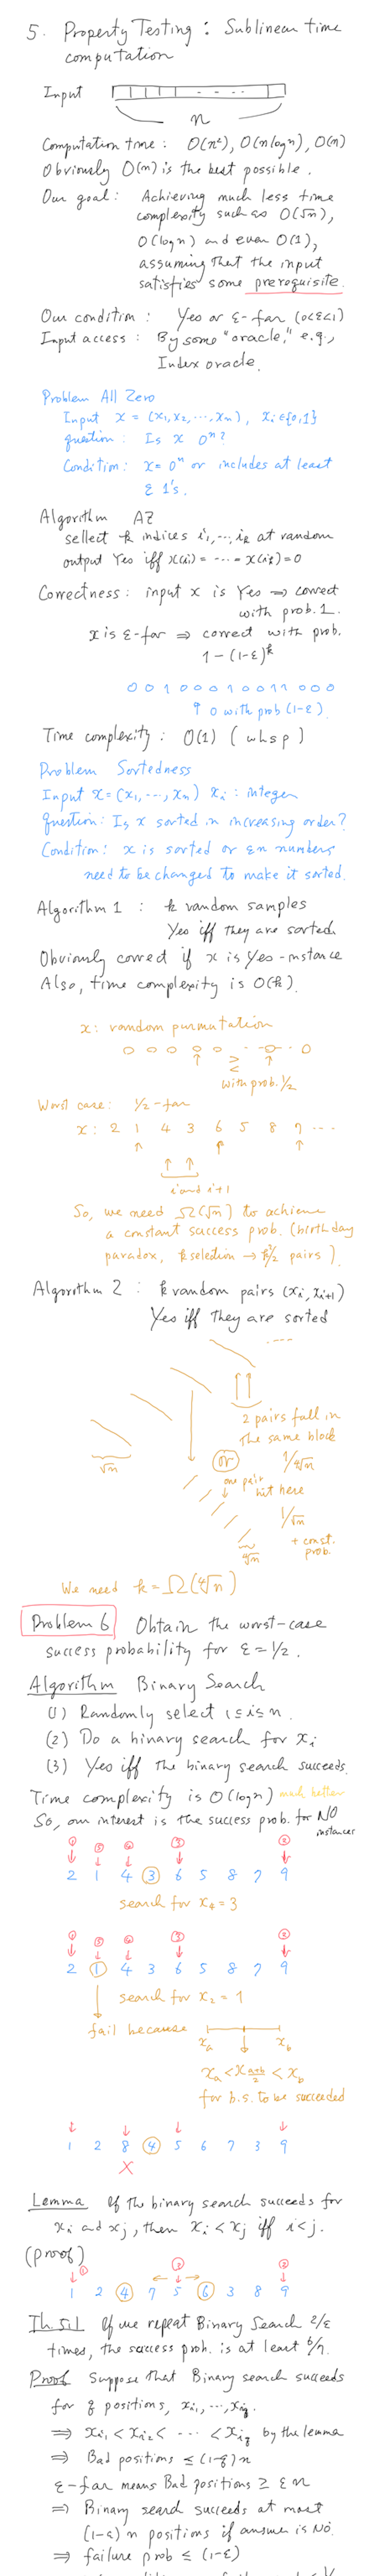 5. Property Testing : Sublinear time
computation
Input
n
Computation time : O(n²), O(n log n), O(n)
Obviously O(n) is the best possible.
Our goal : Achieving much less time
complexity such as O(√n),
O(log n) and even O(1),
assuming that the input
satisfies some prerequisite.
Our condition : Yes or ε-far (0<ε<1)
Input access : By some "oracle," e.g.,
Index oracle.
Problem All Zero
Input x = (x₁, x₂, ..., xₙ), xᵢ∈{0,1}
question : Is x 0ⁿ?
Condition : x = 0ⁿ or includes at least
ε 1's.
Algorithm AZ
sellect k indices i₁, ..., iₖ at random
output Yes iff x(i₁) = --- = x(iₖ) = 0
Correctness : input x is Yes ⇒ correct
with prob. 1.
x is ε-far ⇒ correct with prob.
1-(1-ε)ᵏ
0 0 1 0 0 0 1 0 0 1 1 0 0 0
↑ 0 with prob (1-ε)
Time complexity : O(1) (whsp)
Problem Sortedness
Input x = (x₁, ..., xₙ) xᵢ : integer
question : Is x sorted in increasing order?
Condition : x is sorted or εn numbers
need to be changed to make it sorted.
Algorithm 1 : k random samples
Yes iff they are sorted
Obviously correct if x is Yes-instance
Also, time complexity is O(k).
x : random purmutation
with prob. 1/2
Worst case : 1/2-far
x : 2 1 4 3 6 5 8 7 ...
i and i+1
So, we need Ω(√n) to achieve
a constant success prob. (birthday
paradox, k selection → k²/2 pairs)
Algorithm 2 : k random pairs (xᵢ, xᵢ₊₁)
Yes iff they are sorted
2 pairs fall in
the same block
√n
or
1/∜n
one pair
hit here
1/√n
+ const.
prob.
∜n
We need k = Ω(∜n)
Problem 6 Obtain the worst-case
success probability for ε = 1/2.
Algorithm Binary Search
(1) Randomly select 1≤i≤n.
(2) Do a binary search for xᵢ
(3) Yes iff the binary search succeeds.
Time complexity is O(log n) much better
So, our interest is the success prob. for NO
instances
① ⑤ ④ ③ ②
2 1 4 3 6 5 8 7 9
search for x₄ = 3
① ⑤ ④ ③ ②
2 1 4 3 6 5 8 7 9
search for x₂ = 1
fail because
xₐ x_b
xₐ < x_(a+b)/2 < x_b
for b.s. to be succeeded
1 2 8 4 5 6 7 3 9
X
Lemma If the binary search succeeds for
xᵢ and xⱼ, then xᵢ < xⱼ iff i < j.
(proof)
① ③ ②
1 2 4 7 5 6 3 8 9
Th 5.1 If we repeat Binary Search 2/ε
times, the success prob. is at least 6/7.
Proof Suppose that Binary search succeeds
for q positions, x_i₁, ..., x_iq.
⇒ x_i₁ < x_i₂ < ... < x_iq by the lemma
⇒ Bad positions ≤ (1-q) n
ε-far means Bad positions ≥ εn
⇒ Binary search succeeds at most
(1-ε)n positions if answer is NO.
⇒ failure prob ≤ (1-ε)